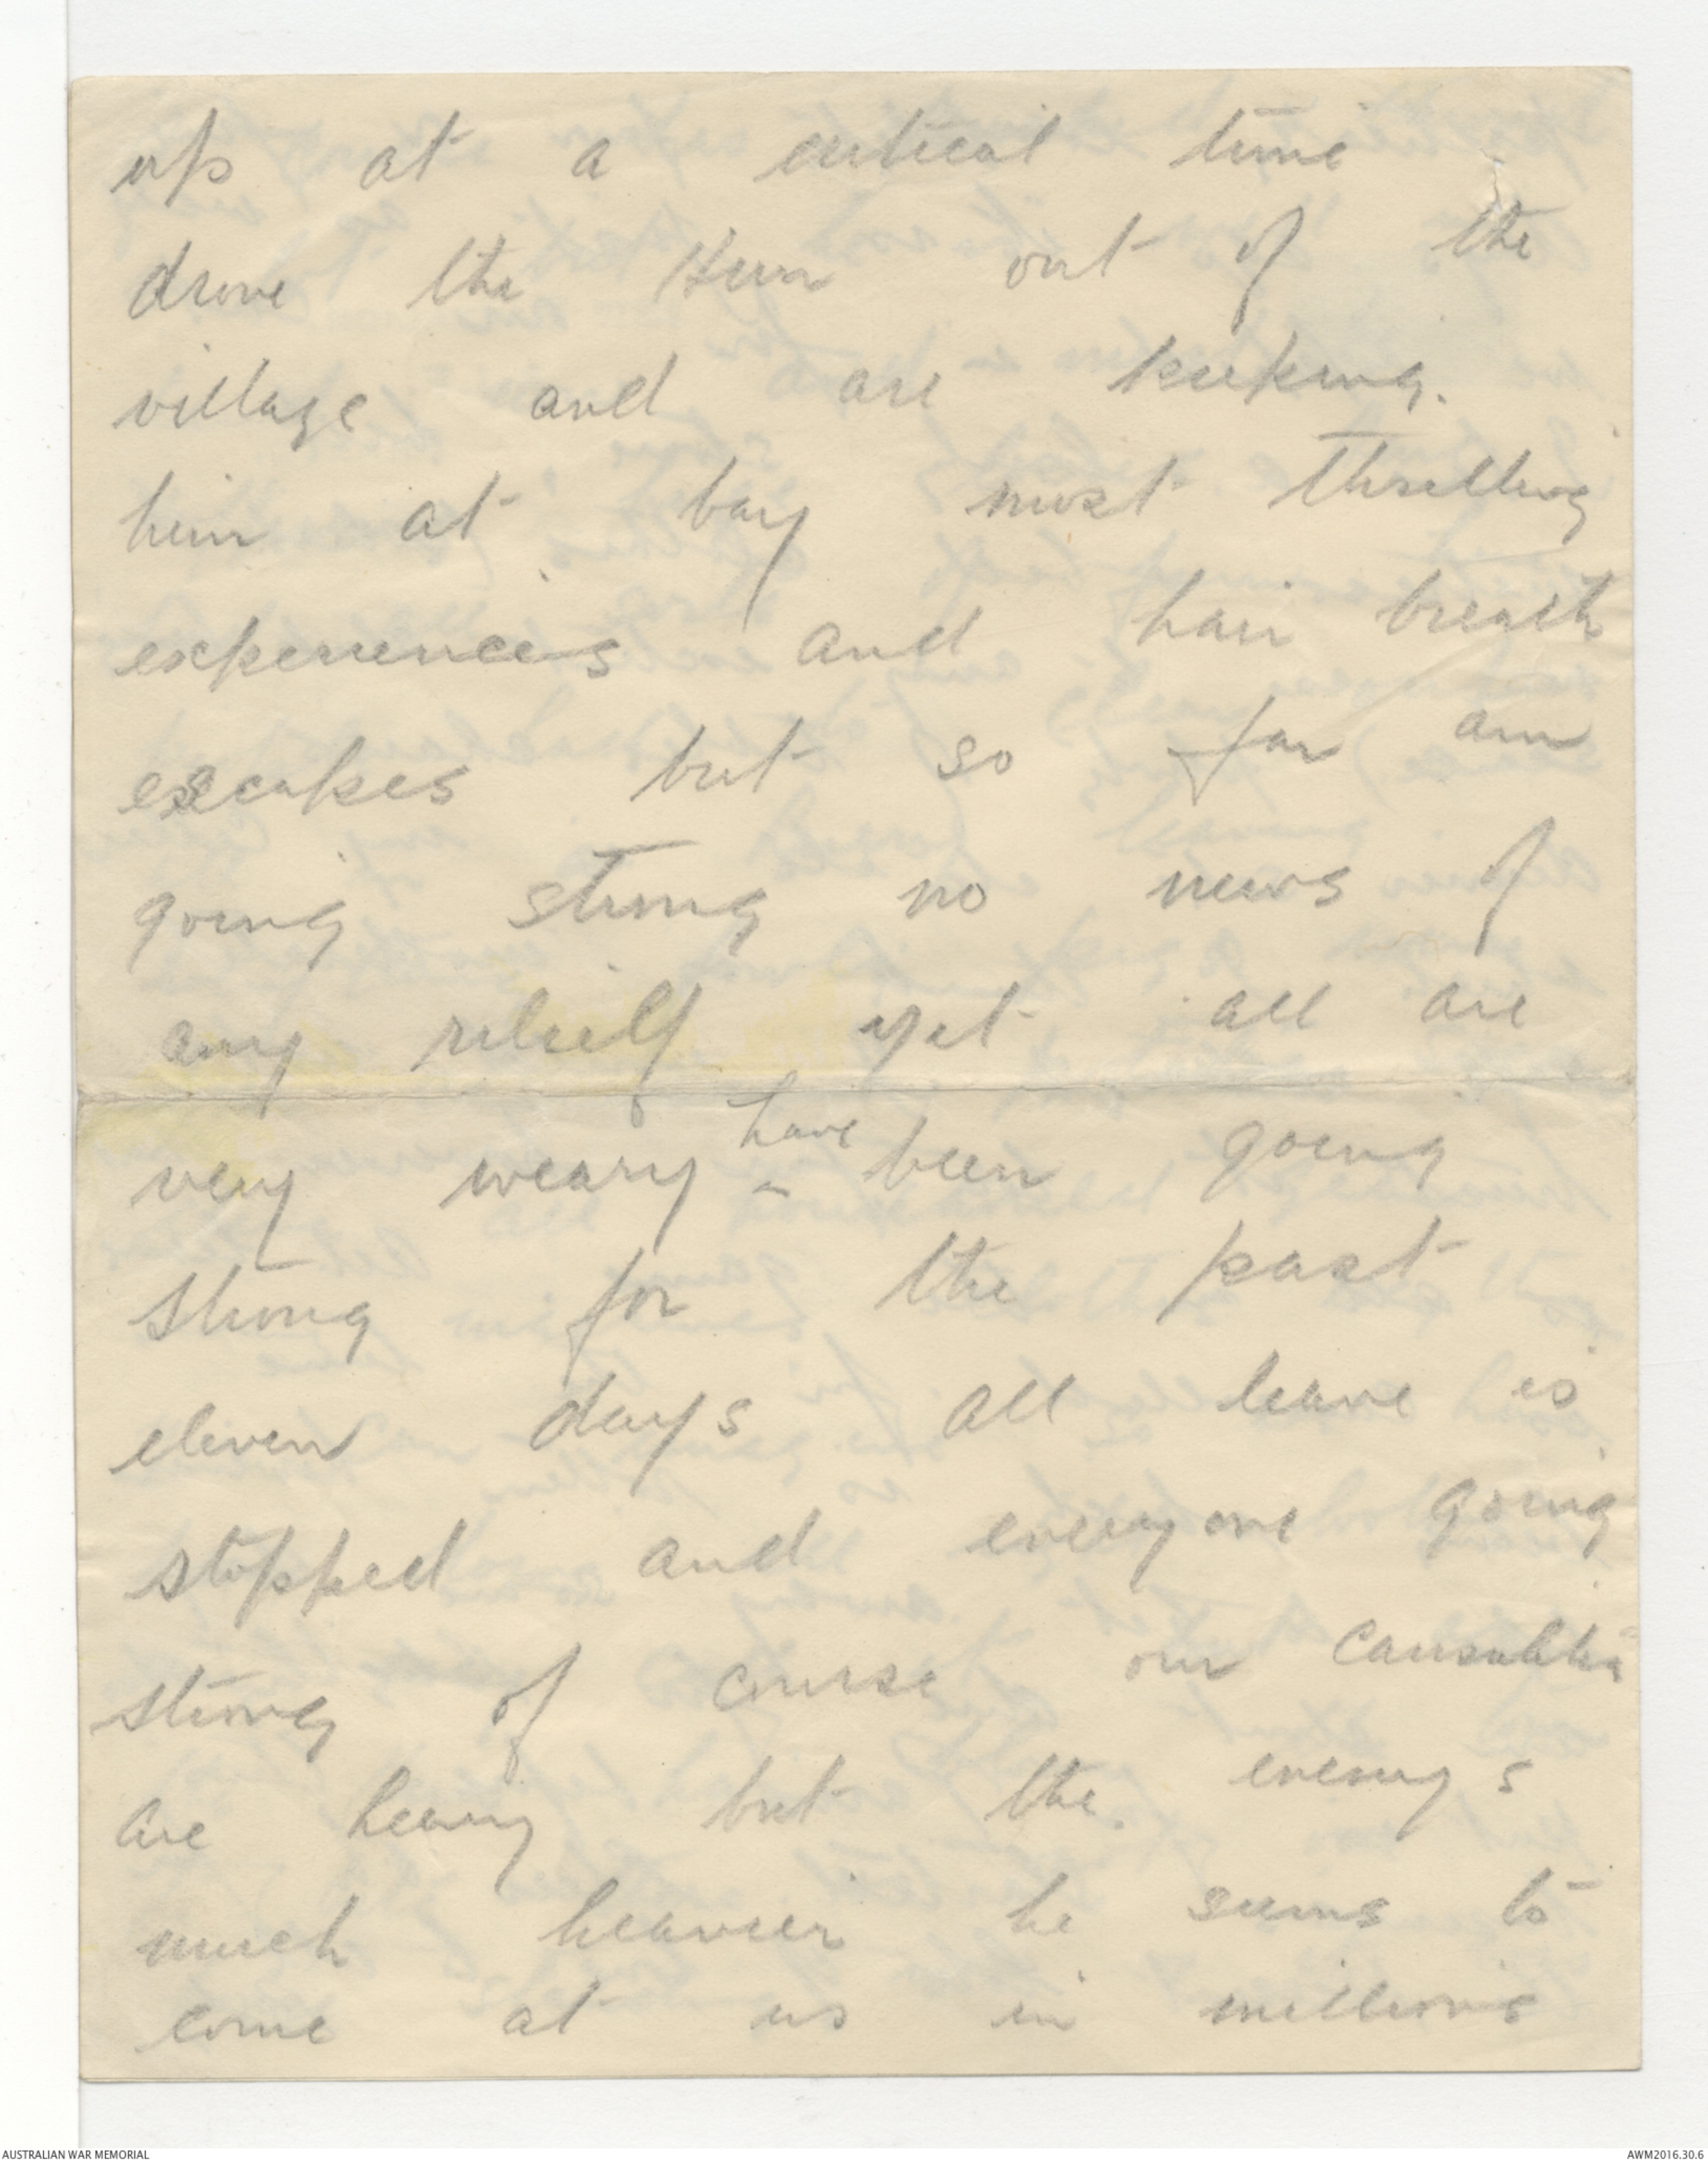 up at a critical time
drove the Hun out of the
village and are keeping.
him at bay most thrilling
experiences and hair breath
escapes but so far am
going strong no news of
any relielf yet all are
very weary have been going
strong for the past
eleven days all leave is
stopped and everyone going
strong of course our
are heavy but the. enemy s
much heavier he seems to
come at us in millions
AUSTRALIAN WAR MEMORIAL
AWM2016.30.6